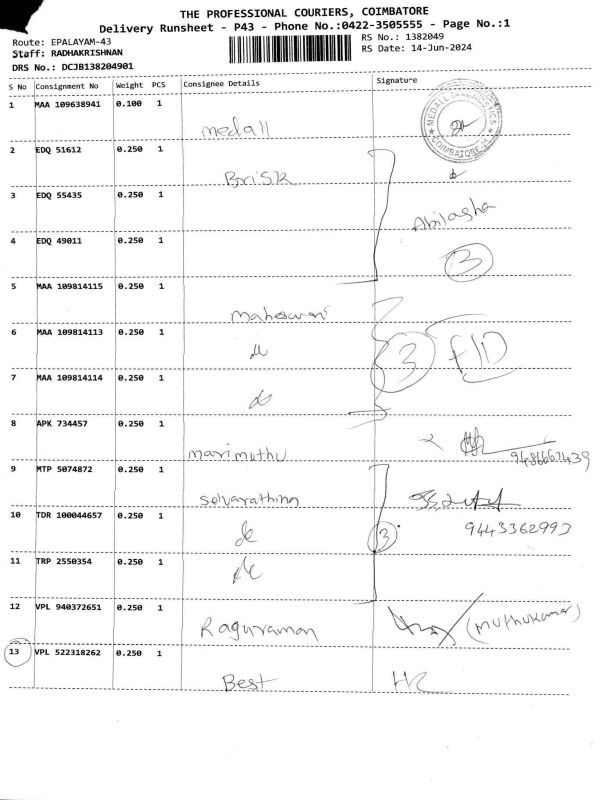 THE PROFESSIONAL COURIERS, COIMBATORE
Delivery Runsheet - P43 - Phone No.:0422-3505555 - Page No.:1
Route: EPALAYAM-43
RS No.: 1382049
Staff: RADHAKRISHNAN
RS Date: 14-Jun-2024
DRS No.: DCJB138204901
S No Consignment No Weight PCS Consignee Details Signature
1 MAA 109638941 0.100 1
medall
MEDALL COIMBATORE
2 EDQ 51612 0.250 1
Brisk
3 EDQ 55435 0.250 1
Abilasha
4 EDQ 49011 0.250 1
3
5 MAA 109814115 0.250 1
Maheswari
6 MAA 109814113 0.250 1
3 F/D
7 MAA 109814114 0.250 1
8 APK 734457 0.250 1
marimuthu
9 MTP 5074872 0.250 1
selvarathina
10 TDR 100044657 0.250 1
3 9443362993
11 TRP 2550354 0.250 1
12 VPL 940372651 0.250 1
Raguraman (Muthukumar)
13 VPL 522318262 0.250 1
Best